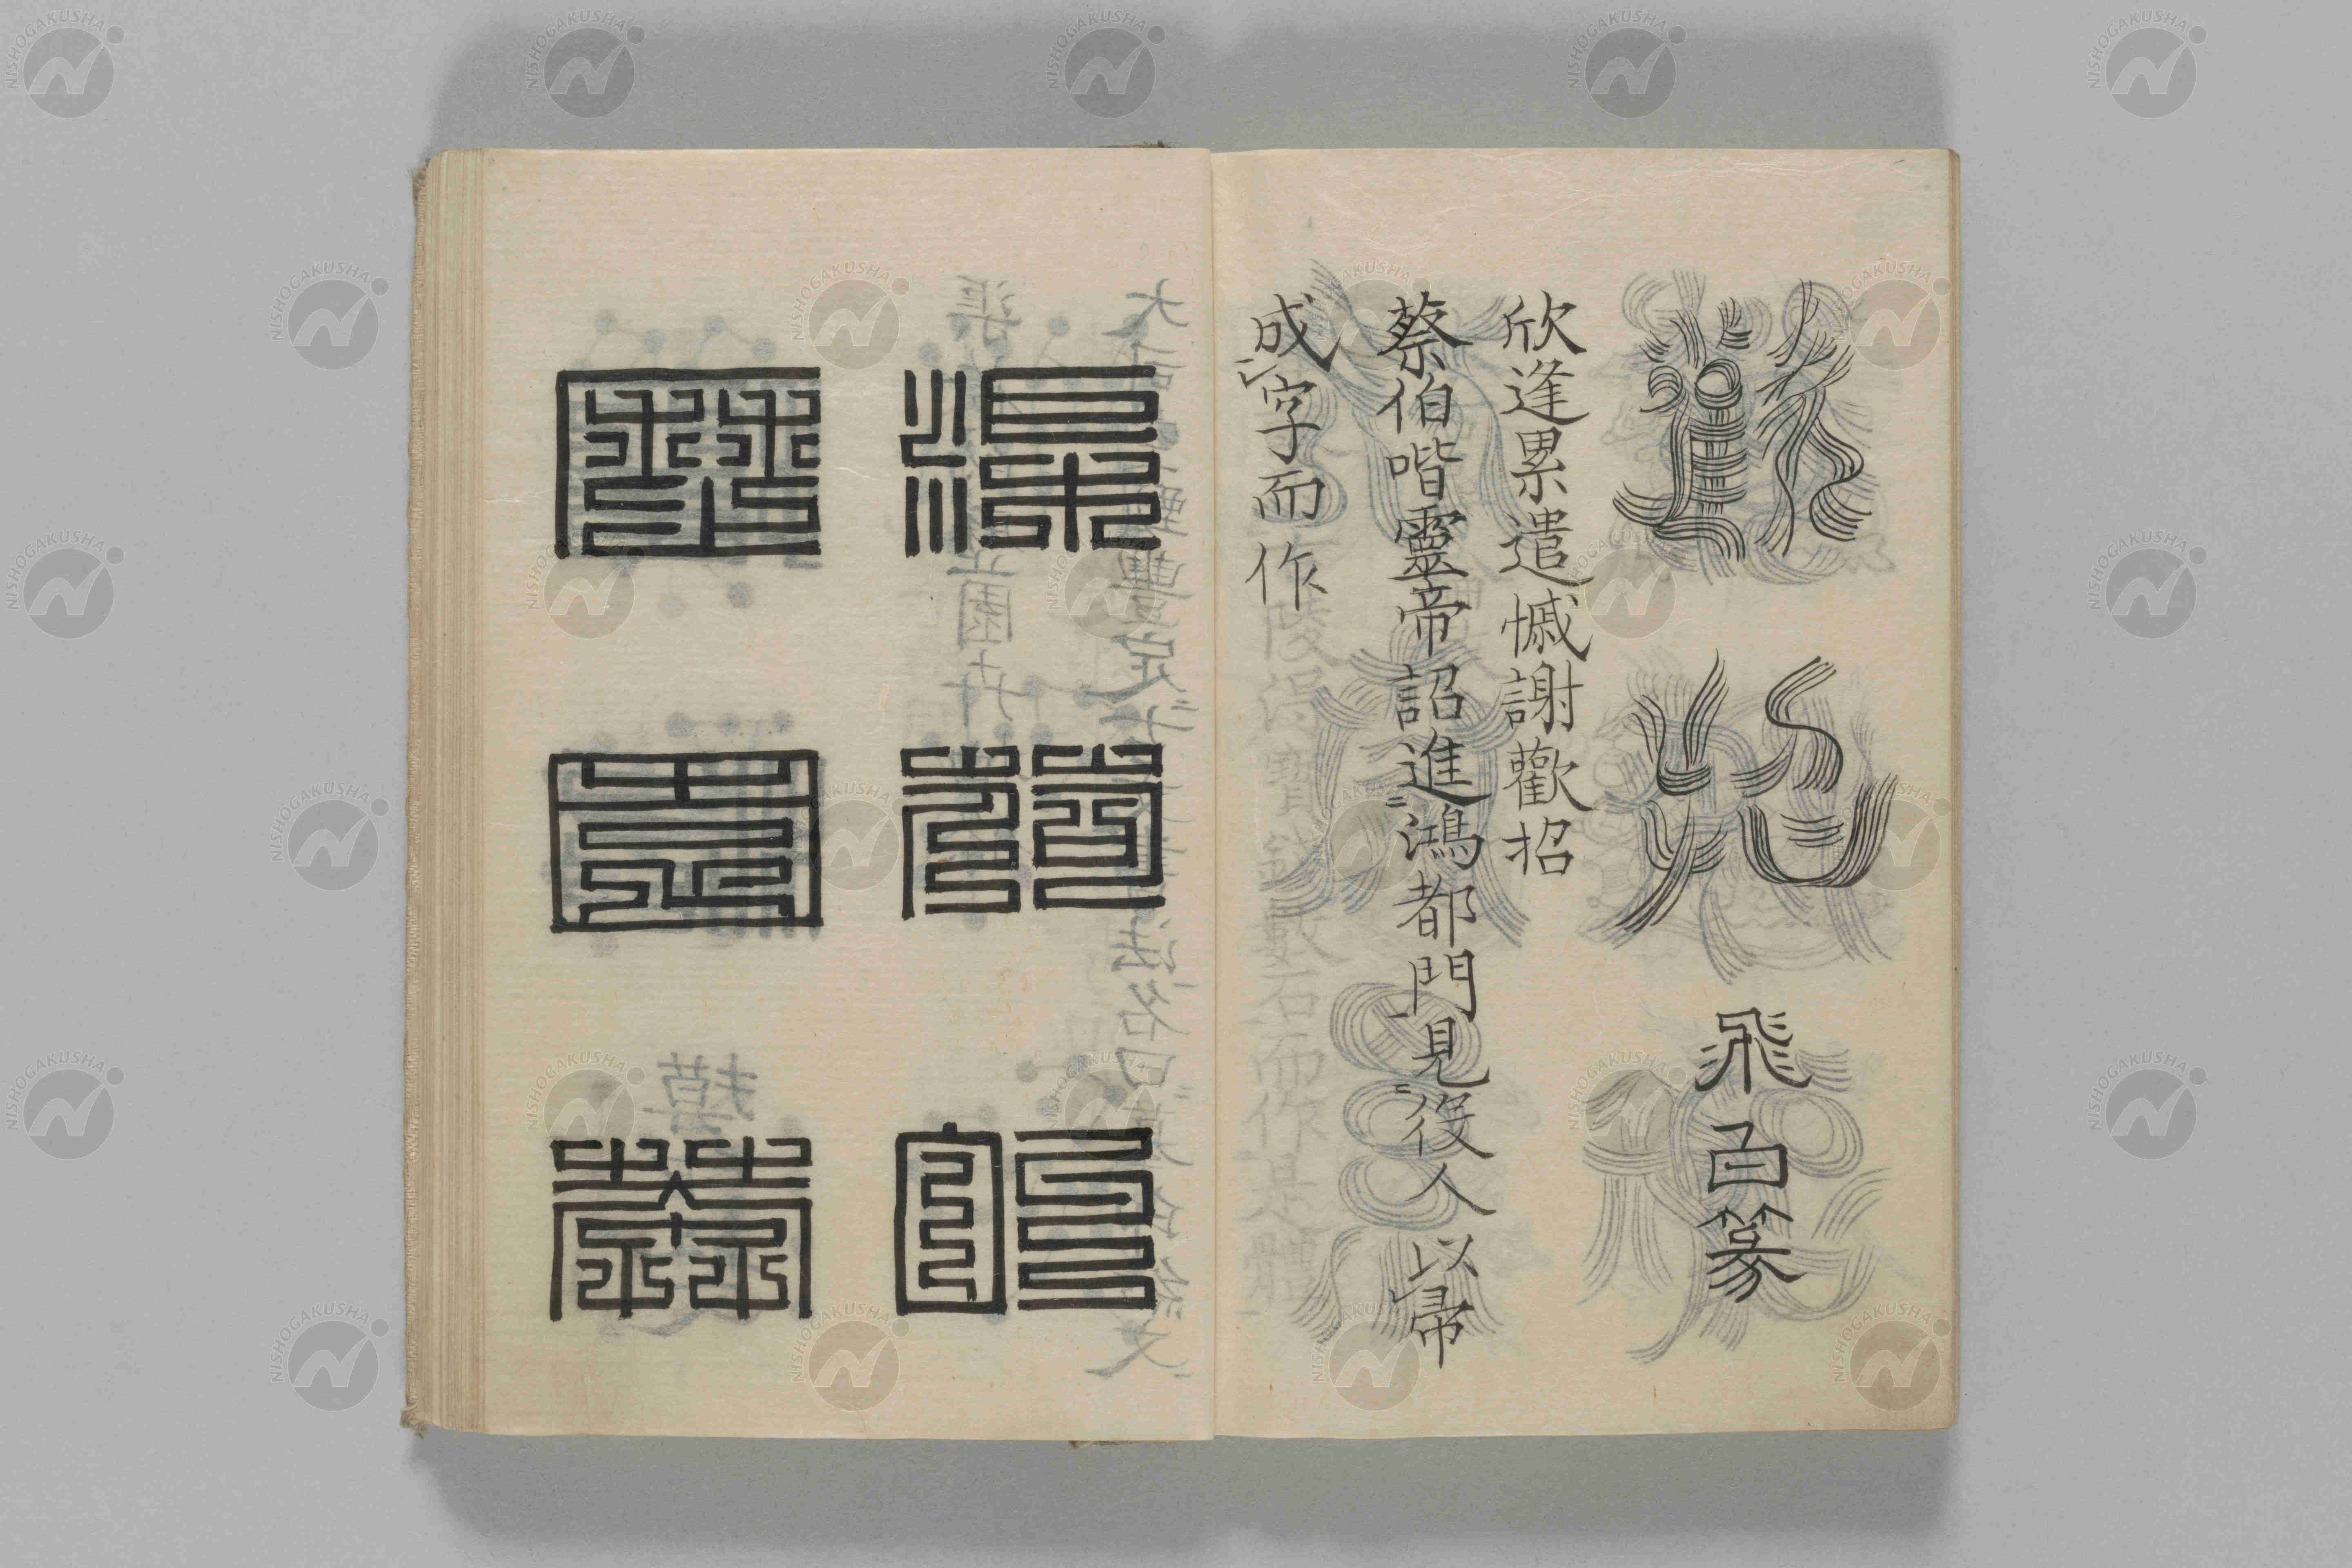 歡招 飛白篆
欣逢累遣慼謝歡招
蔡伯喈靈帝詔進鴻都門見役人以帚
成字而作
渠荷的
歷園莽
NISHOGAKUSHA